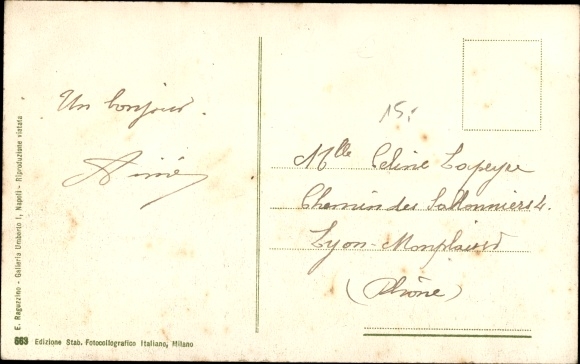 Un bonjour.
Aimé
15,
Mlle Celine Lapeyre
Chemin des Sablonniers 4.
Lyon-Monplaisir
(Rhône)
E. Ragozzino - Galleria Umberto I, Napoli - Riproduzione vietata
663 Edizione Stab. Fotocollografico Italiano, Milano